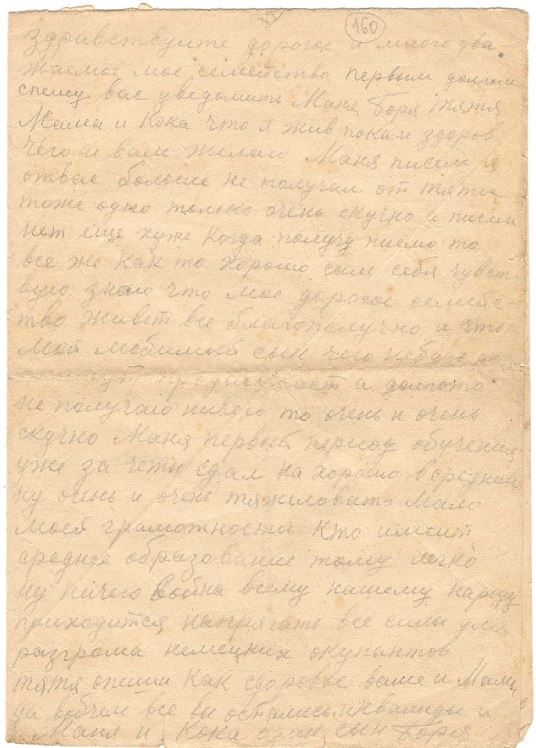 160
здравствуите дорогое и много ува
жаемое мое семейство первым долгом
спешу вас уведомить Маня Боря тятя
Мама и Кока что я жив пока и здоров
чего и вам желаю Маня писем я
отвас больше не получал от тяти
тоже одно только очень скучно и писем
нет еще хуже когда получу писмо то
все же как то хорошо сам себя чувст
вую знаю что мое дорогое семейс-
тво живет все благополучно и что
мой любимый сын чего небудь да
а долгота
не получаю ничего то очень и очень
скучно Маня первый период обучения
уже за чети сдал на хорошо
ну очень и очень тяжеловато мало
моей грамотности кто имеит
среднее образование тому легко
ну ничего война всему нашему народу
приходится напрягать все силы для
разгрома немецких окупантов
тятя опиши как здоровье ваше и Мамы
да вобчем все вы остались инвалиды и
Маня и Кока один сын Боря